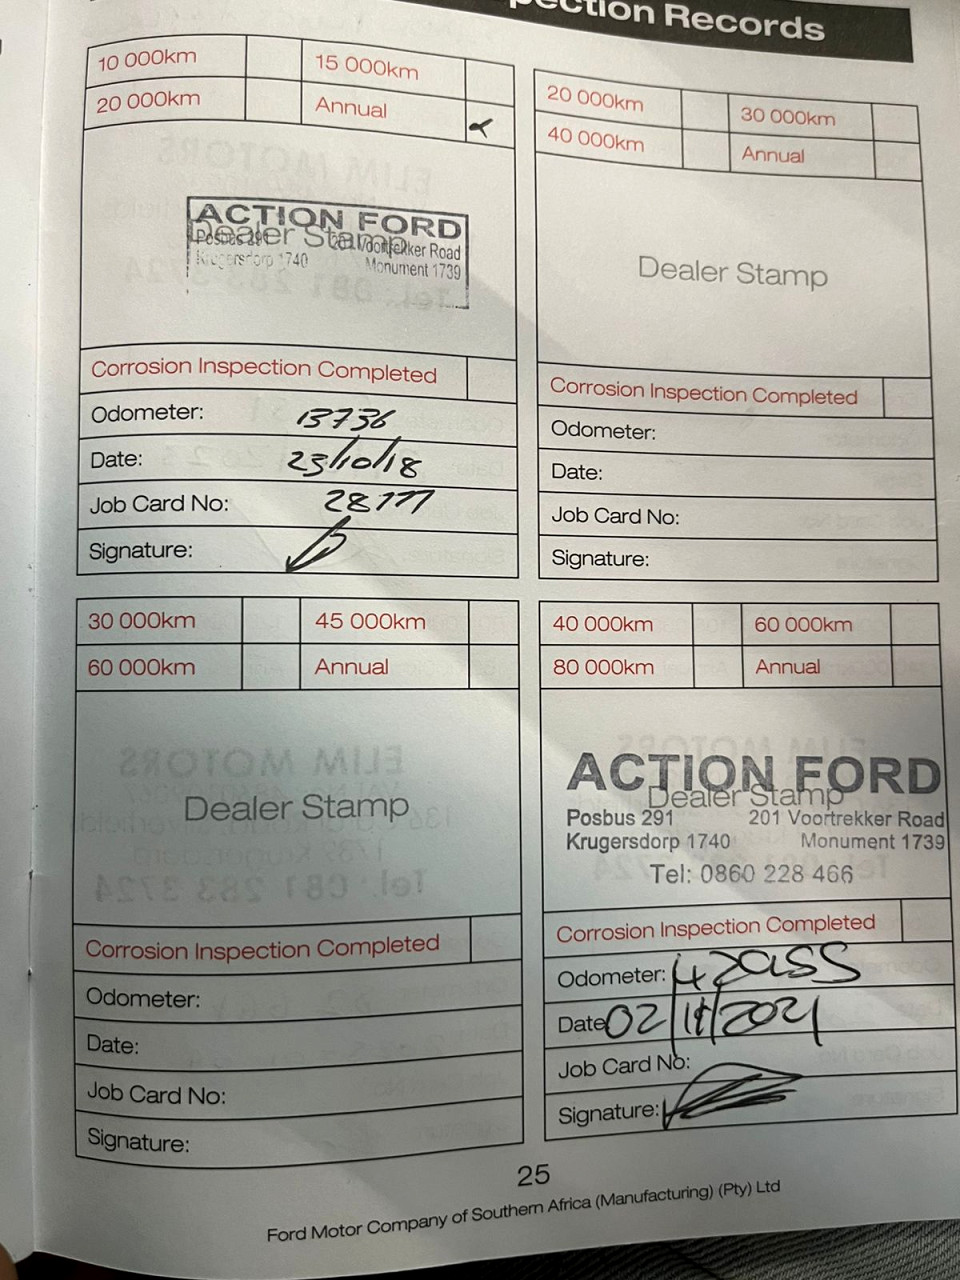 ection Records
10 000km 15 000km
20 000km Annual
ACTION FORD
Dealer Stamp
Posbus 291 201 Voortrekker Road
Krugersdorp 1740 Monument 1739
Corrosion Inspection Completed
Odometer: 13736
Date: 23/10/18
Job Card No:
Signature:
20 000km 30 000km
40 000km Annual
Dealer Stamp
Corrosion Inspection Completed
Odometer:
Date:
Job Card No:
Signature:
30 000km 45 000km
60 000km Annual
Dealer Stamp
Corrosion Inspection Completed
Odometer:
Date:
Job Card No:
Signature:
40 000km 60 000km
80 000km Annual
ACTION FORD
Dealer Stamp
Posbus 291 201 Voortrekker Road
Krugersdorp 1740 Monument 1739
Tel: 0860 228 466
Corrosion Inspection Completed
Odometer:
Date 02/11/2021
Job Card No:
Signature:
25
Ford Motor Company of Southern Africa (Manufacturing) (Pty) Ltd